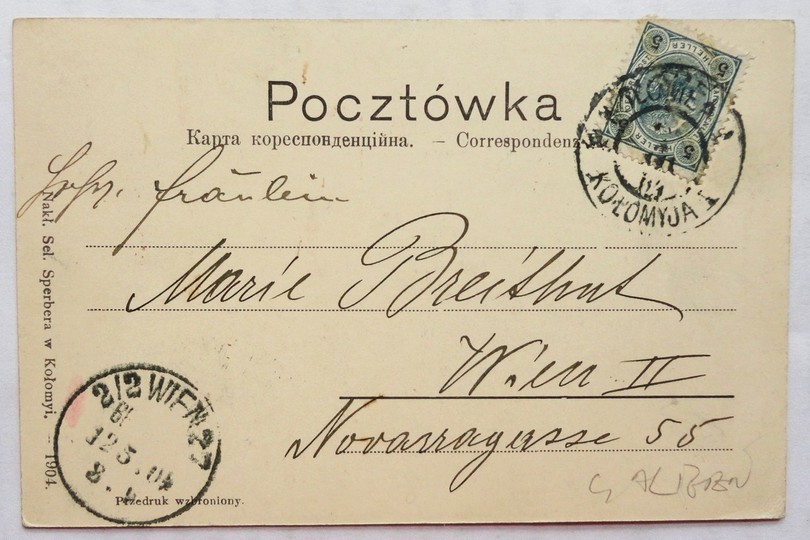 Pocztówka
Карта кореспонденційна. — Correspondenz
5 HELLER 5
5
KOŁOMYJA
fräulein
Marie Breithut
Wien II
Novaragasse 55
Nakł. Sel. Sperbera w Kołomyi. — 1904.
2/2 WIEN 2/2
12 5. 04
8.
Przedruk wzbroniony.
GALIZIEN